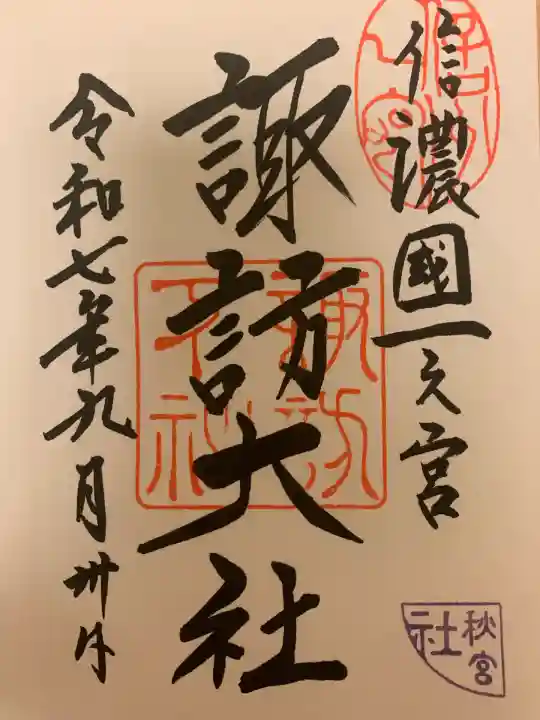 信濃國一之宮
諏訪大社
諏訪
下社
令和七年九月卅日
秋宮
社